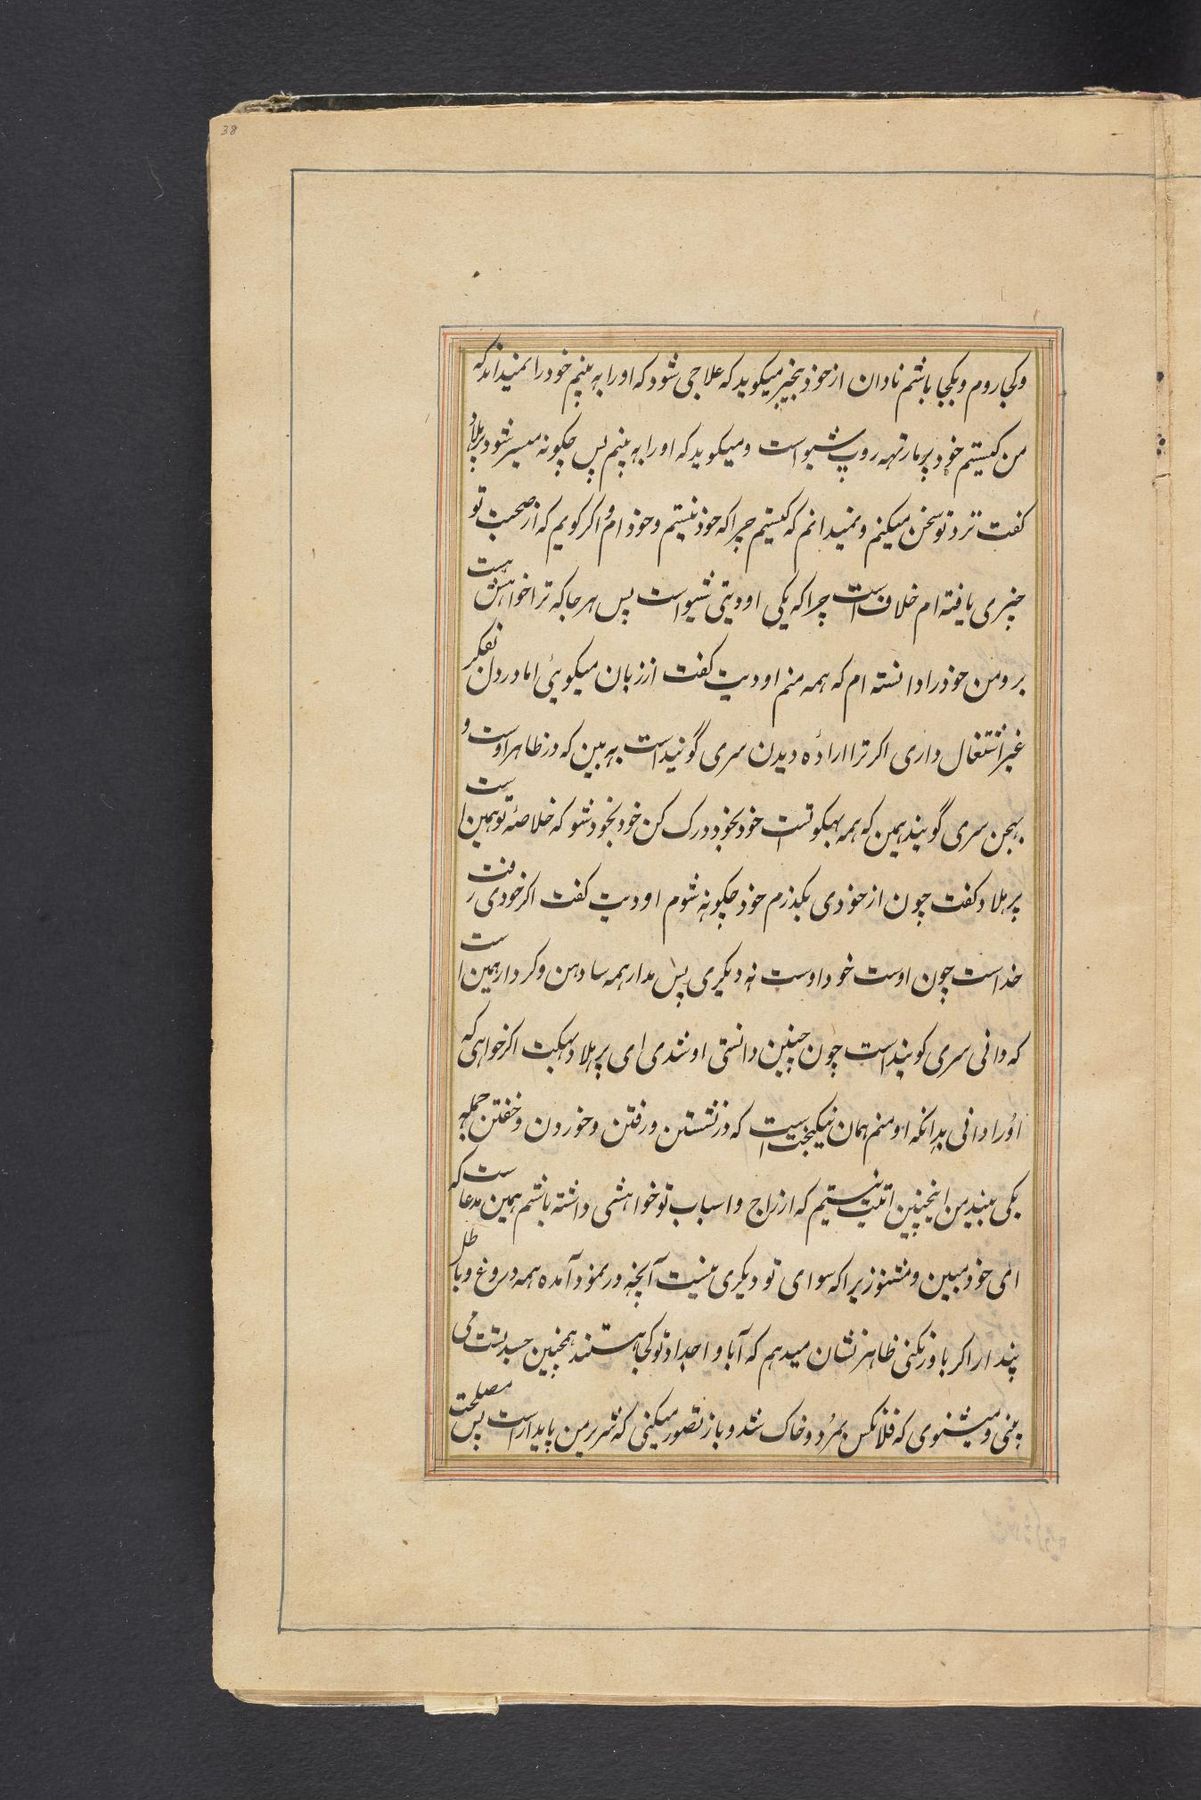 38
وکجا روم و بکجا باشم نادان از خود بیخبر میکوید که علاجی شود که اورا به بینم خود را نمیداند که
من کیستم خود پرمارتهه روپ شیو است و میکوید که اورا به بینم پس چکونه میسر شود پرهلاد
کفت نزد تو سخن میکنم و نمیدانم که کیستم چرا که خود نیستم و خود ام و اکر کویم که از صحبت تو
چیزی یافته ام خلاف است چرا که یکی اودیتی شیو است پس هر جا که ترا خواهش است
برو من خود را دانسته ام که همه منم اودیت کفت از زبان میکوئی اما در دل تفکر
غیر اشتغال داری اکر ترا ارادهٔ دیدن سری گوبند است به بین که در ظاهر اوست و
بهجن سری گوبند همین که همه بهکو تست خود بخود درک کن خود بخود شو که خلاصهٔ تو همین است
پرهلاد کفت چون از خودی بکذرم خود چکونه شوم اودیت کفت اکر خودی رفت
خداست چون اوست خود اوست نه دیکری پس مدار همه سادهن و کردار همین است
که دانی سری کوبند است چون چنین دانستی او شدی ای پرهلاد بهکت اکر خواهی که
اورا دانی بدانکه او منم همان نیکبخت است که در نشستن و رفتن و خوردن و خفتن جمله
یکی بیند من اینچنین اتیت نیستم که از راج و اسباب تو خواهشی داشته باشم همین مدعا است که
ای خود مبین و مشنو زیرا که سوای تو دیکری نیست آنچه در نمود آمده همه دروغ و باطل
پندار اکر باور نکنی ظاهر نشان میدهم که آبا و اجداد تو کجا هستند همچنین جسد تست می
بینی و میشنوی که فلانکس بمُرد و خاک شد و باز تصور میکنی که شریر من پایدار است پس مصلحت